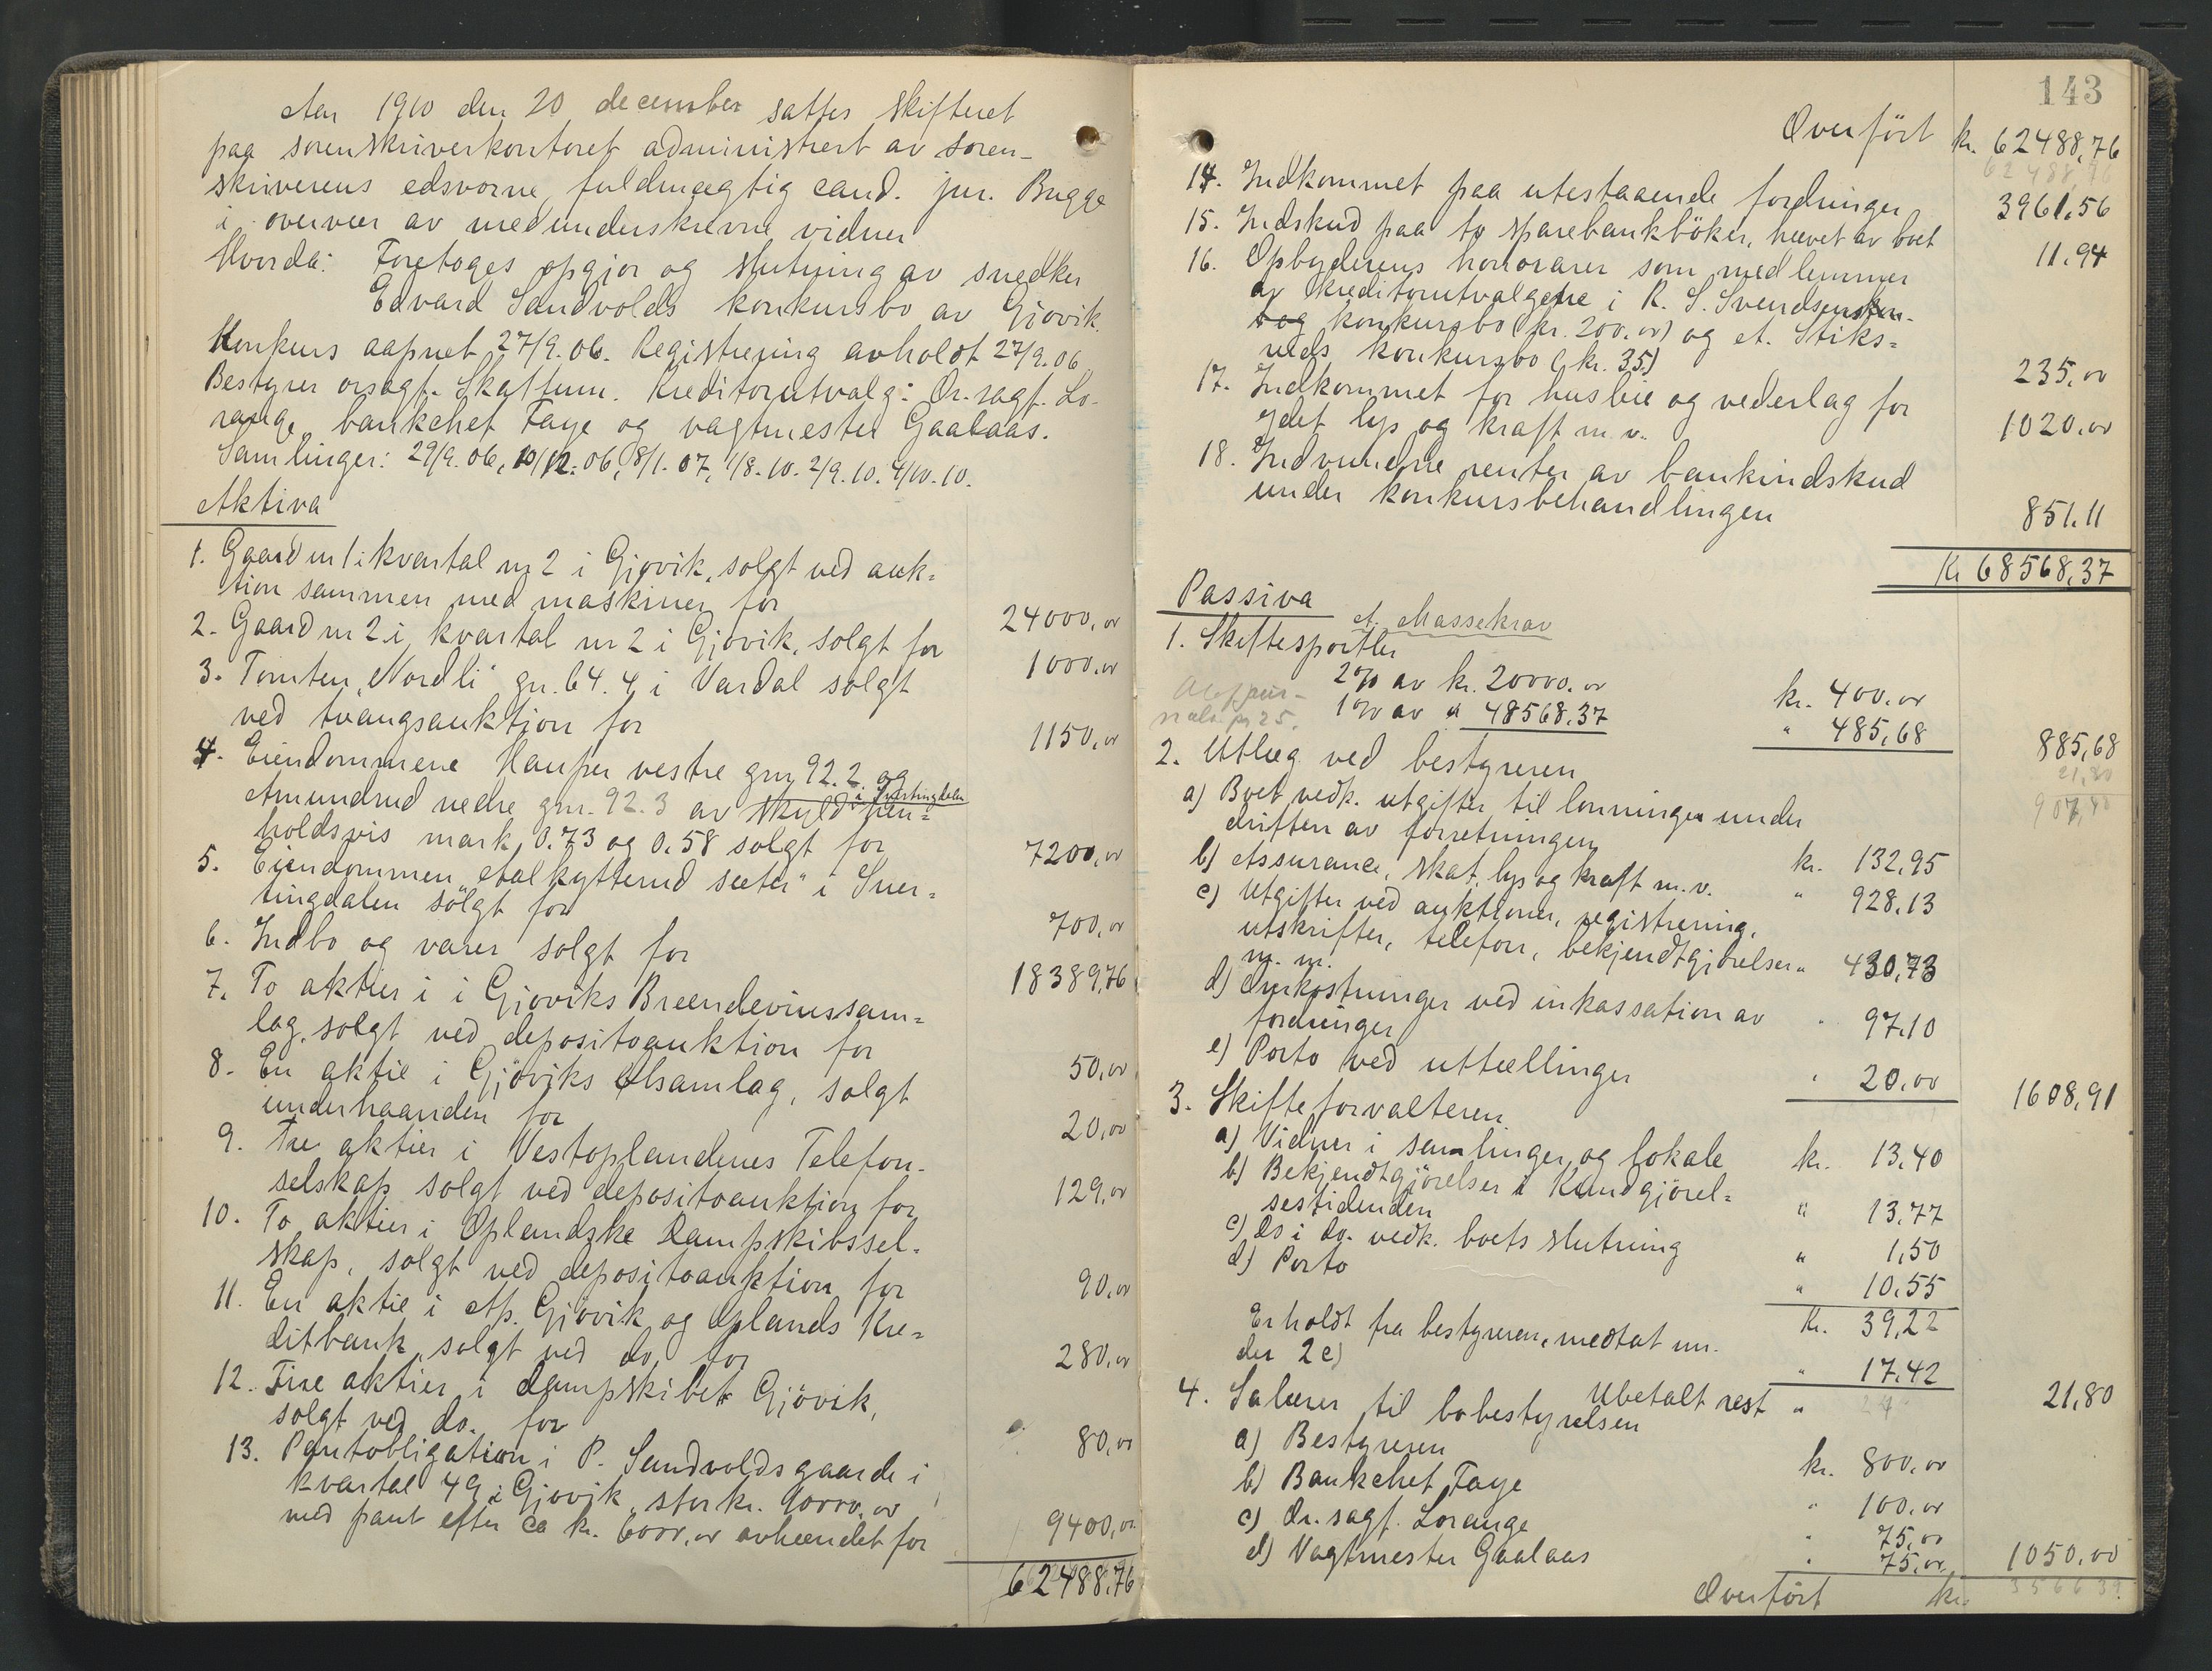 Aar 1910 den 20 december sattes skifteret
paa sorenskriverkontoret administrert av soren-
skriverens edsvorne fuldmægtig cand. jur. Brugge
i overvær av medunderskrevne vidner
Hvorda: Foretoges opgjör og slutning av snedker
Edvard Sandvolds konkursbo av Gjövik.
Konkurs aapnet 27/9.06. Registrering avholdt 27/9.06
Bestyrer orsagf. Skattum. Kreditorutvalg: Or.sagf. Lo-
range, bankchef Faye og vagtmester Gaalaas.
Samlinger: 29/9.06, 10/12.06, 8/1.07, 1/8.10. 2/9.10. 4/10.10.
Aktiva
1. Gaard nr 1 i kvartal nr 2 i Gjøvik, solgt ved auk=
tion sammen med maskiner for 24000,00
2. Gaard nr 2 i kvartal nr 2 i Gjovik, solgt for 1000,00
3. Tomten "Nordli" gn. 64.4 i Vardal solgt
ved tvangsauktion for 1150,00
4. Eiendommene Hauper vestre gnr 92.2 og
Amundrud nedre gnr. 92.3 av skyld hen= i Snertingdalen
holdsvis mark 0.73 og 0.58 solgt for 7200,00
5. Eiendommen "Aalkytterud sæter" i Sner=
tingdalen sölgt for 700,00
6. Indbo og varer solgt for 18389,76
7. To aktier i i Gjöviks Brændevinssam=
lag, solgt ved depositoauktion for 50,00
8. En aktie i Gjöviks Ølsamlag, solgt
underhaanden for 20,00
9. Tre aktier i Vestoplandenes Telefon-
selskap solgt ved depositoauktion for 129,00
10. To aktier i Oplandske Dampskibssel-
skap, solgt ved depositoauktion for 90,00
11. En aktie i A/p. Gjövik og Oplands Kre=
ditbank, solgt ved do. for 280,00
12. Fire aktier i dampskibet Gjövik,
solgt ved do. for 80,00
13. Pantobligation i P. Sandvolds gaarde i
kvartal 49 i Gjövik, stor kr. 10000,00
med pant efter ca kr. 6000,00 avhændet for 9400,00
62488,76
143
Overfört kr. 62488,76
62488,76
14. Indkommet paa utestaaende fordringer 3961,56
15. Indskud paa to sparebankböker, hævet av boet 11.94
16. Opbyderens honorarer som medlemmer
av kreditorutvalgene i R. S. Svendsens kon-
s og konkursbo (kr. 200.00) og A. Stiks=
ruds konkursbo (kr. 35) 235,00
17. Indkommet for husleie og vederlag for
ydet lys og kraft m.v. 1020,00
18. Indvundne renter av bankindskud
under konkursbehandlingen 851.11
Kr 68568,37
Passiva
A. Massekrav
1. Skiftesportler
2% av kr. 20000.00 kr. 400.00
1% av " 48568.37 " 485,68 885,68
21,80
907,48
2. Utlæg ved bestyreren
a) Boet vedk. utgifter til lonninger under
driften av forretningen kr. 132,95
b) Assurance, skat, lys og kraft m.v. " 928,13
c) Utgifter ved auktioner, registrering,
utskrifter, telefon, bekjendtgjörelser " 430,73
m. m.
d) Omkostninger ved inkassation av
fordringer " 97.10
e) Porto ved uttællinger " 20,00 1608,91
3. Skifteforvalteren
a) Vidner i samlinger og lokale kr. 13,40
b) Bekjendtgjörelser i Kundgjörel=
sestidenden " 13,77
c) Do i do. vedk. boets slutning " 1,50
d) Porto " 10.55
Kr. 39,22
Erholdt fra bestyreren, medtat un-
der 2 c) " 17.42
Ubetalt rest " 21,80
4. Salærer til bobestyrelsen
a) Bestyreren kr. 800.00
b) Bankchef Faye " 100.00
c) Or.sagf. Lorange " 75.00
d) Vagtmester Gaalaas " 75.00 1050.00
Overfört kr. 3566.39